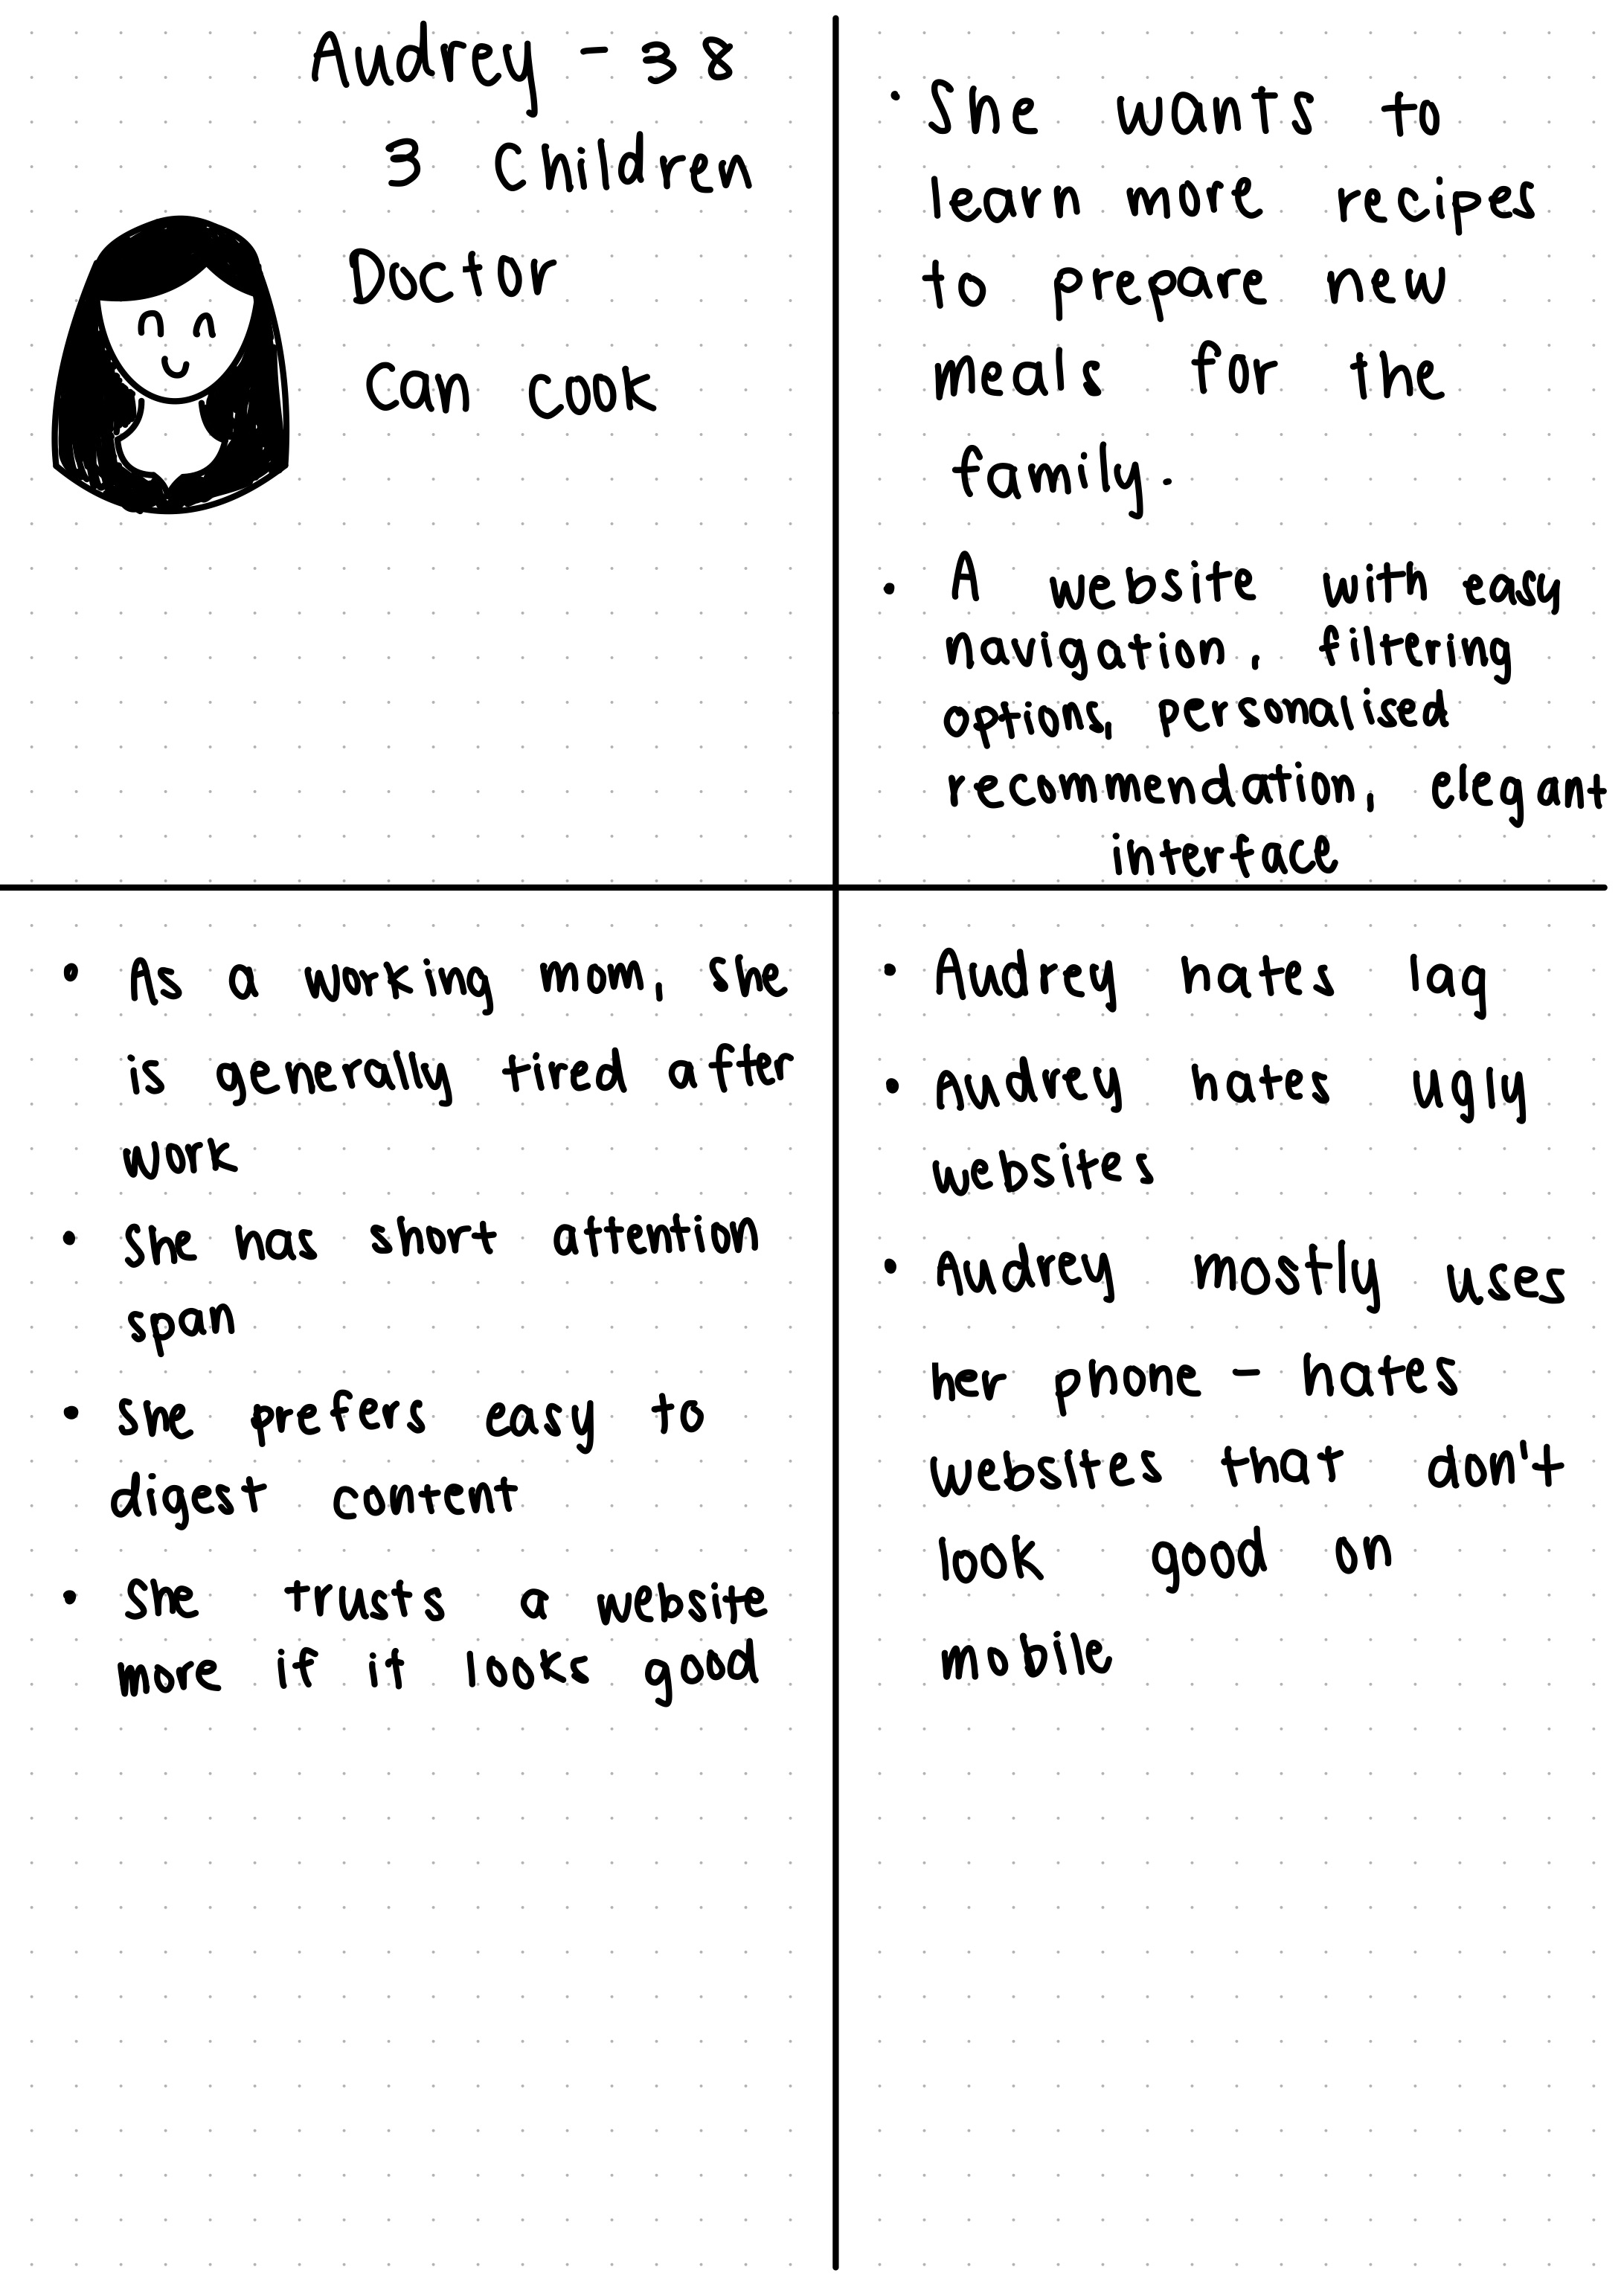 Audrey - 38
3 Children
Doctor
can cook
• She wants to
learn more recipes
to prepare new
meals for the
family.
• A website with easy
navigation, filtering
options, personalised
recommendation, elegant
interface
• As a working mom, she
is generally tired after
work
• She has short attention
span
• she prefers easy to
digest content
• She trusts a website
more if it looks good
• Audrey hates lag
• Audrey hates ugly
websites
• Audrey mostly uses
her phone - hates
websites that don't
look good on
mobile